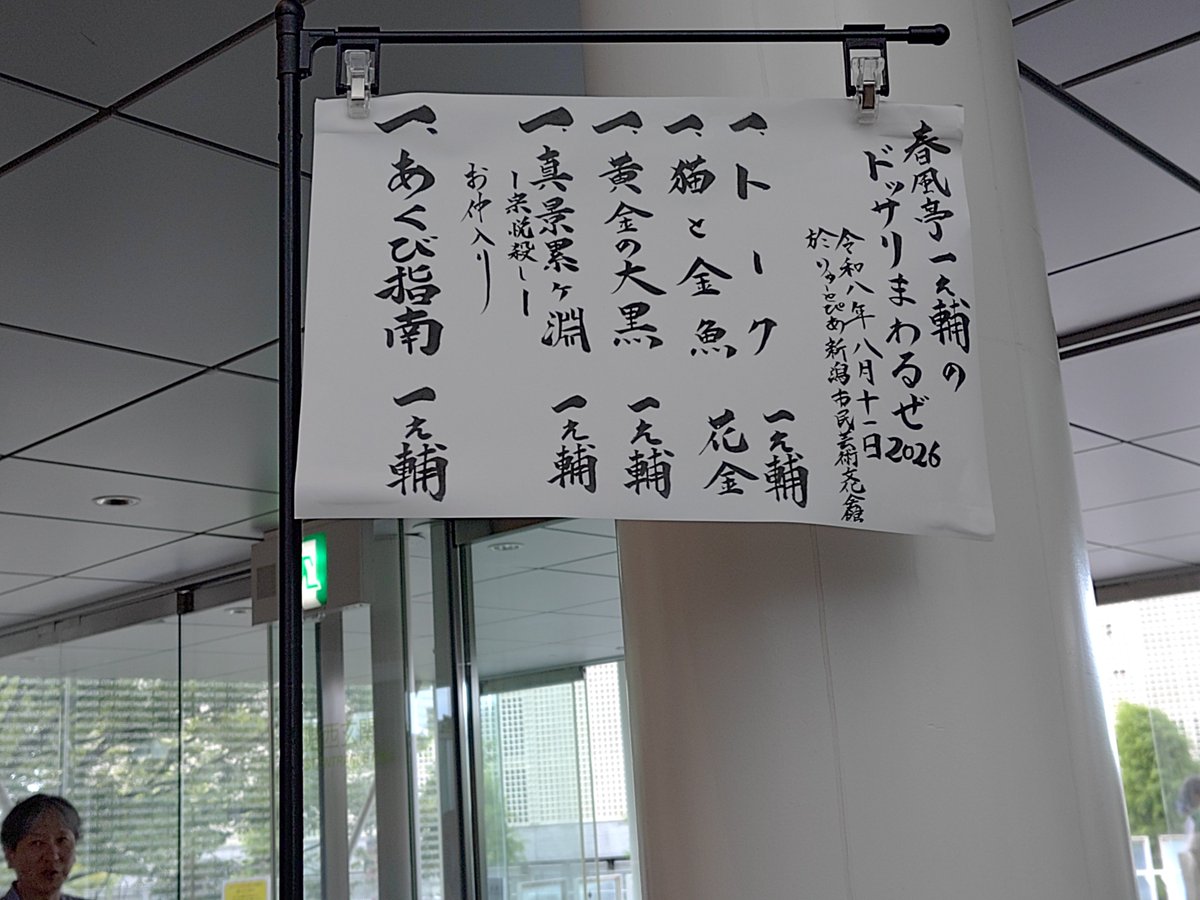 春風亭一之輔の
ドッサリまわるぜ2026
令和八年八月十一日
於りゅーとぴあ新潟市民芸術文化會館
一、トーク 一之輔
一、猫と金魚 花金
一、黄金の大黒 一之輔
一、真景累ヶ淵 一之輔
ー宗悦殺しー
お仲入り
一、あくび指南 一之輔